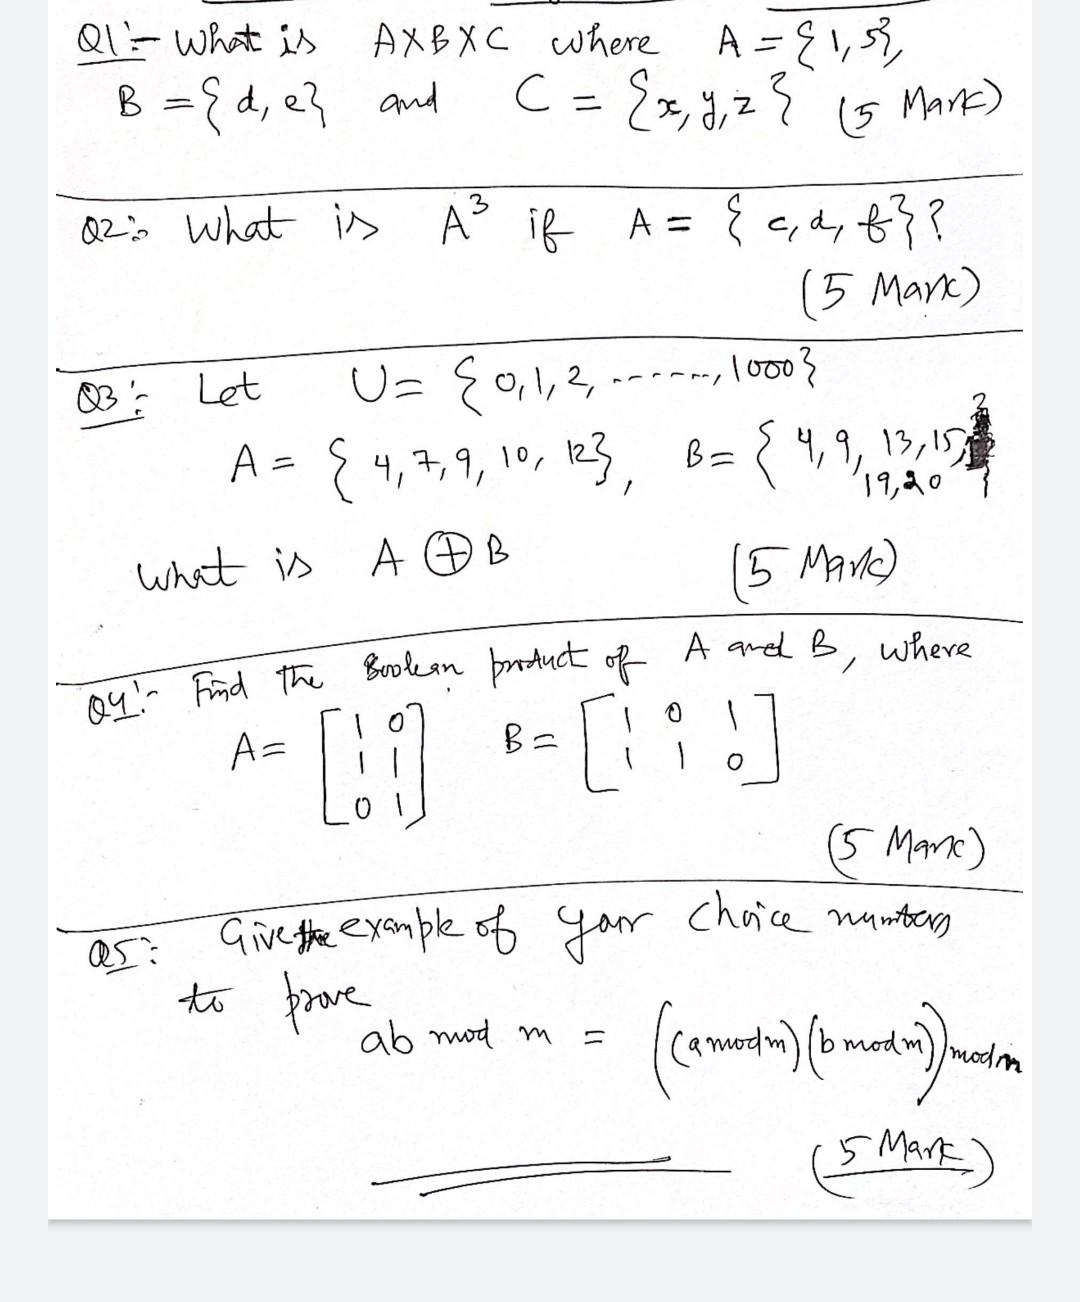 Q1:- What is A×B×C where A = {1, 5},
B = {d, e} and C = {x, y, z} (5 Mark)
Q2: What is A³ if A = {c, d, f}?
(5 Mark)
Q3: Let U = {0, 1, 2, ------, 1000}
A = {4, 7, 9, 10, 12}, B = {4, 9, 13, 15,
19, 20}
What is A ⊕ B (5 Mark)
Q4:- Find the Boolean product of A and B, where
A = [1 0 B = [1 0 1
1 1 1 1 0]
0 1]
(5 Mark)
Q5: Give the example of your choice numbers
to prove
ab mod m = ((a mod m) (b mod m)) mod m
(5 Mark)